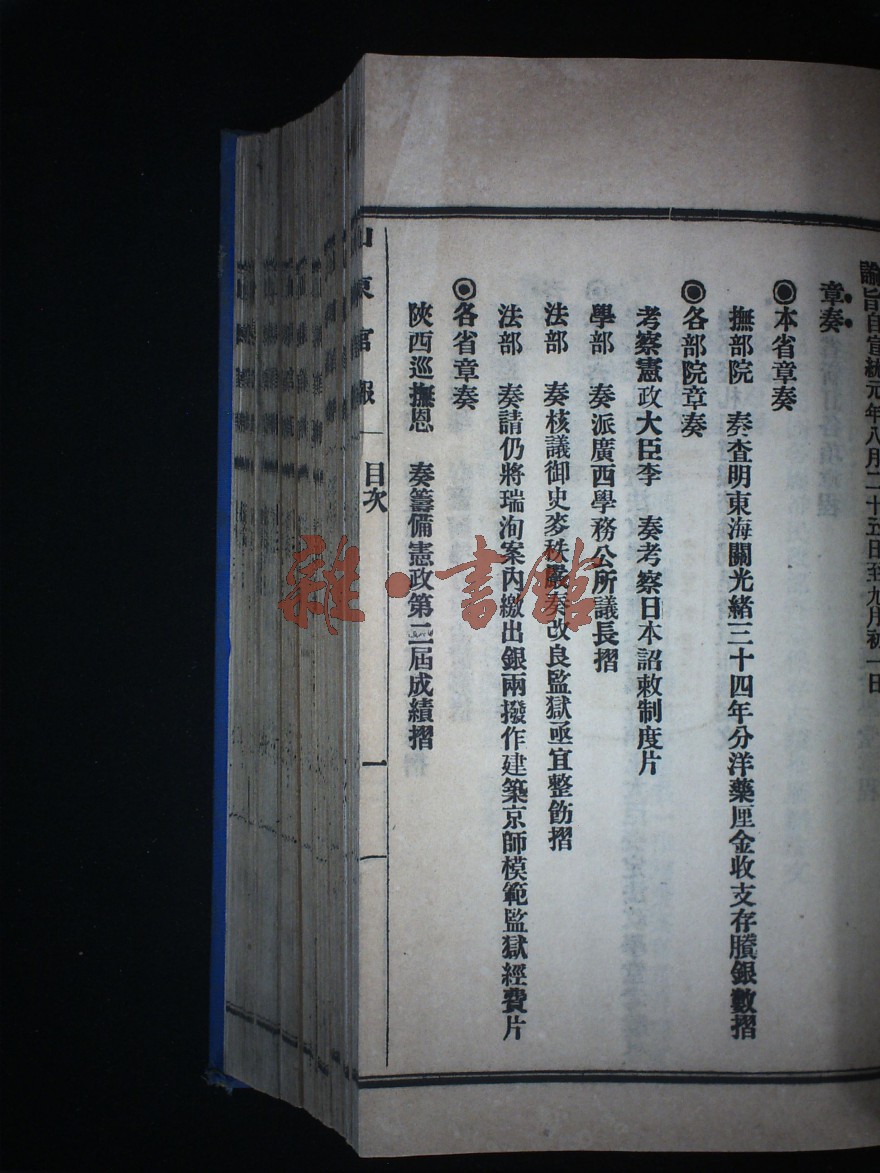 諭旨自宣統元年八月二十五日至九月初一日
章奏
◉本省章奏
撫部院　奏查明東海關光緒三十四年分洋藥厘金收支存賸銀數摺
◉各部院章奏
考察憲政大臣李　奏考察日本詔敕制度片
學部　奏派廣西學務公所議長摺
法部　奏核議御史麥秩嚴奏改良監獄亟宜整飭摺
法部　奏請仍將瑞洵案內繳出銀兩撥作建築京師模範監獄經費片
◉各省章奏
陝西巡撫恩　奏籌備憲政第二屆成績摺
山東官報　目次　一
雜·書館